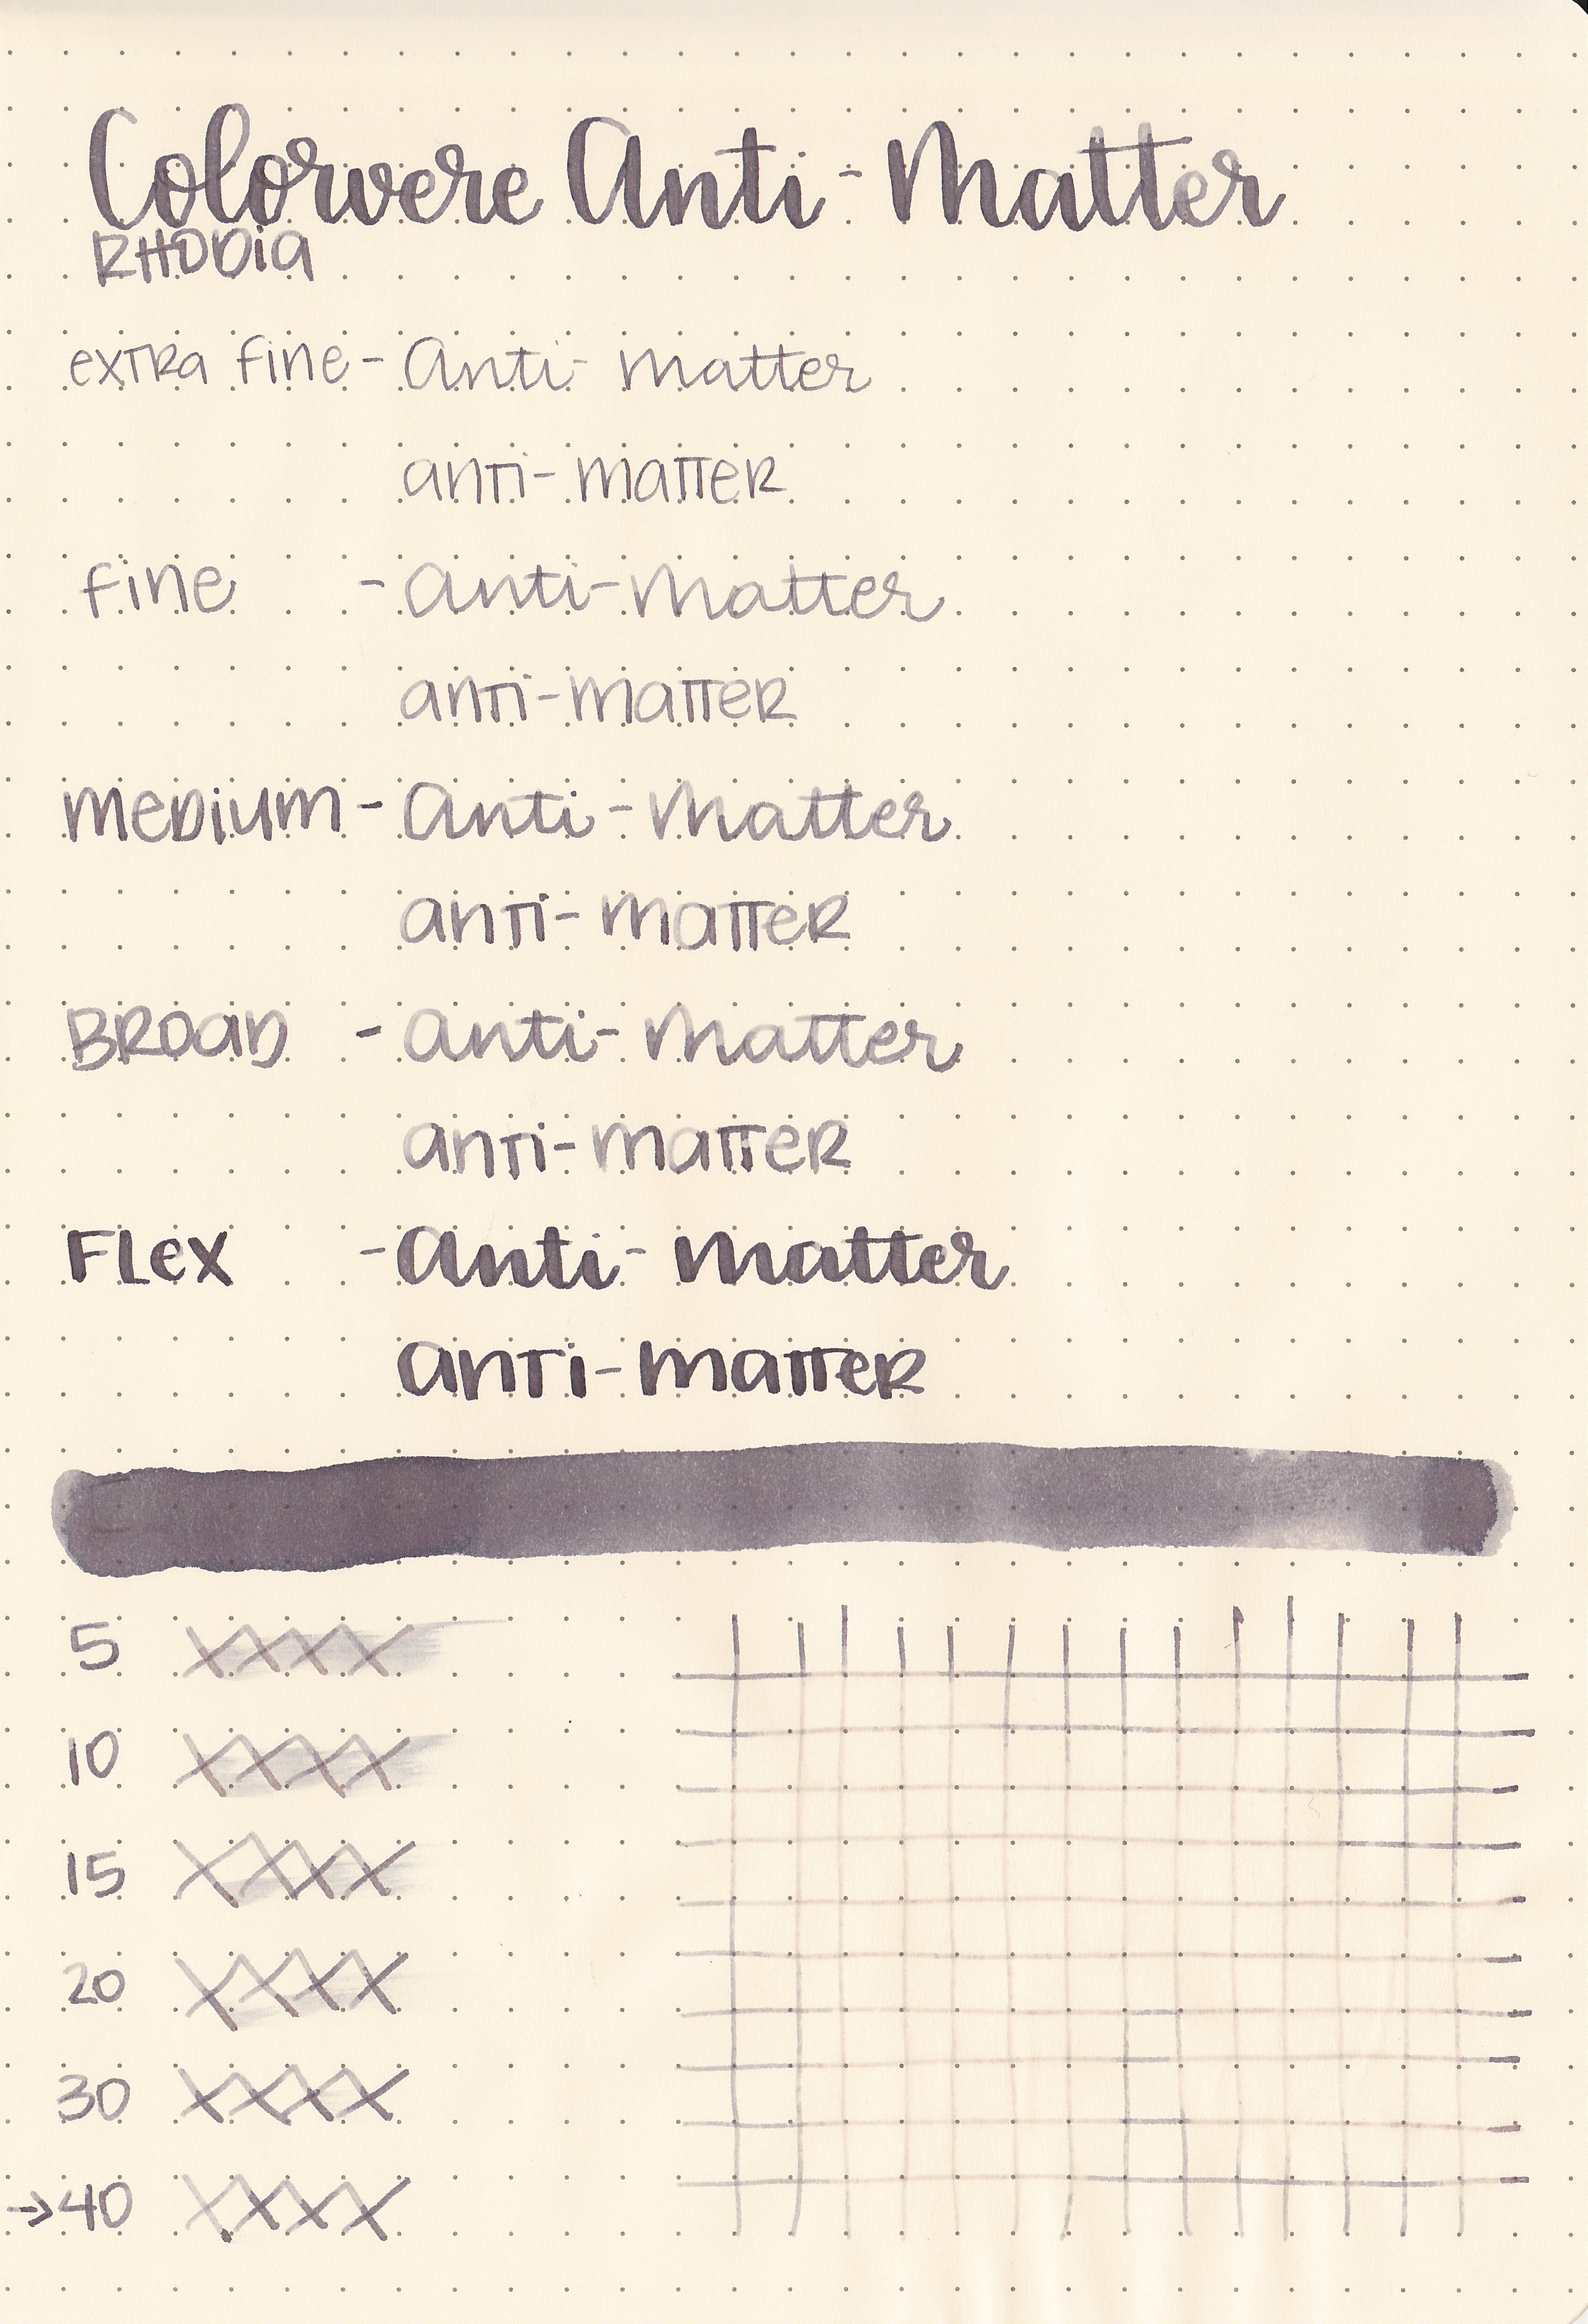 Colorvere Anti-Matter
RHODIA
extra fine - Anti-Matter
anti-matter
fine - Anti-Matter
anti-matter
medium - Anti-Matter
anti-matter
Broad - Anti-Matter
anti-matter
Flex - Anti-Matter
anti-matter
5 XXXX
10 XXXX
15 XXXX
20 XXXX
30 XXXX
→40 XXXX